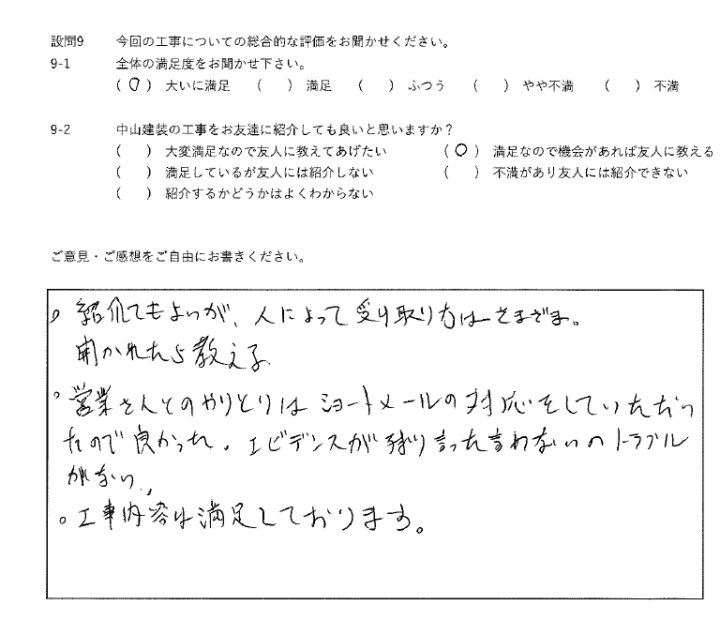 設問9 今回の工事についての総合的な評価をお聞かせください。
9-1 全体の満足度をお聞かせ下さい。
(〇) 大いに満足 ( ) 満足 ( ) ふつう ( ) やや不満 ( ) 不満
9-2 中山建装の工事をお友達に紹介しても良いと思いますか？
( ) 大変満足なので友人に教えてあげたい (〇) 満足なので機会があれば友人に教える
( ) 満足しているが友人には紹介しない ( ) 不満があり友人には紹介できない
( ) 紹介するかどうかはよくわからない
ご意見・ご感想をご自由にお書きください。
。紹介てもよいが、人によって受け取り方はさまざま。
聞かれたら教える。
。営業さんとのやりとりはショートメールの対応をしていただい
たので良かった。エビデンスが残り言った言わないのトラブル
がない。
。工事内容は満足しております。